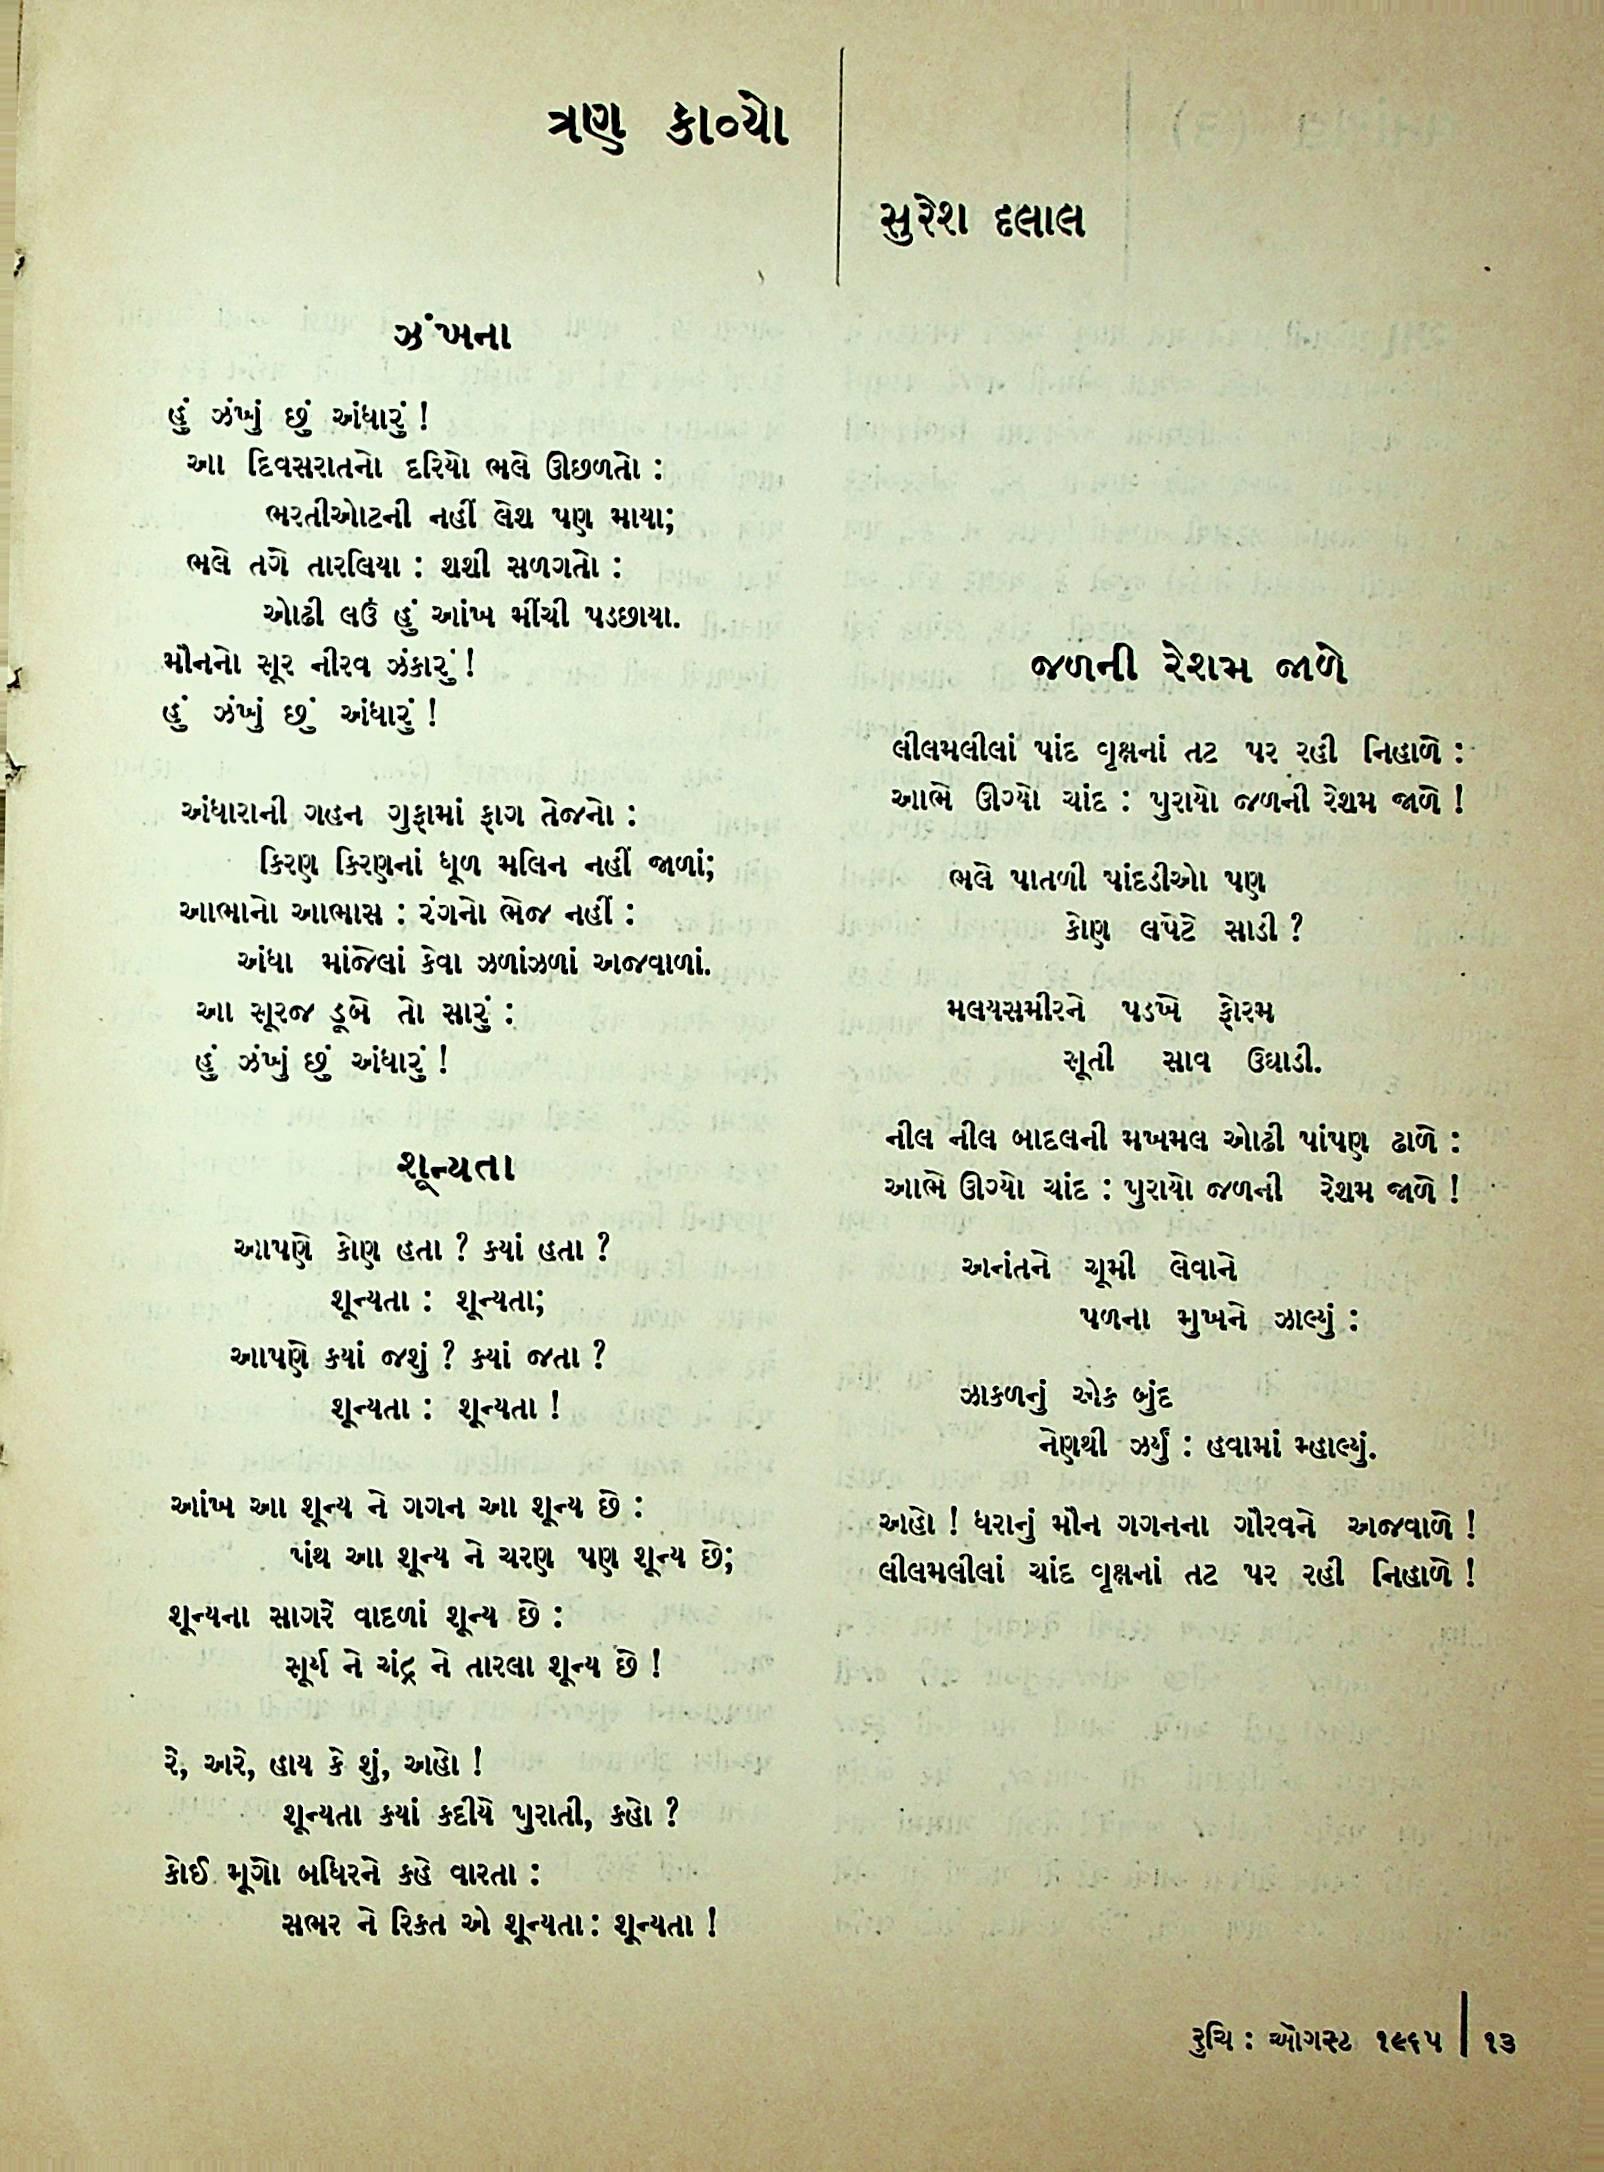 ત્રણ કાવ્યો
સુરેશ દલાલ
ઝંખના
હું ઝંખું છું અંધારું !
આ દિવસરાતનો દરિયો ભલે ઊછળતો :
ભરતીઓટની નહીં લેશ પણ માયા;
ભલે તગે તારલિયા : શશી સળગતો :
ઓઢી લઉં હું આંખ મીંચી પડછાયા.
મૌનનો સૂર નીરવ ઝંકારું !
હું ઝંખું છું અંધારું !
અંધારાની ગહન ગુફામાં ફાગ તેજનો :
કિરણ કિરણનાં ધૂળ મલિન નહીં જાળાં;
આભાનો આભાસ : રંગનો ભેજ નહીં :
અંધા માંજેલાં કેવા ઝળાંઝળાં અજવાળાં.
આ સૂરજ ડૂબે તો સારું :
હું ઝંખું છું અંધારું !
શૂન્યતા
આપણે કોણ હતા ? ક્યાં હતા ?
શૂન્યતા : શૂન્યતા;
આપણે ક્યાં જશું ? ક્યાં જતા ?
શૂન્યતા : શૂન્યતા !
આંખ આ શૂન્ય ને ગગન આ શૂન્ય છે :
પંથ આ શૂન્ય ને ચરણ પણ શૂન્ય છે;
શૂન્યના સાગરે વાદળાં શૂન્ય છે :
સૂર્ય ને ચંદ્ર ને તારલા શૂન્ય છે !
રે, અરે, હાય કે શું, અહો !
શૂન્યતા ક્યાં કદીયે પુરાતી, કહો ?
કોઈ મૂગો બધિરને કહે વારતા :
સભર ને રિક્ત એ શૂન્યતા : શૂન્યતા !
જળની રેશમ જાળે
લીલમલીલાં પાંદ વૃક્ષનાં તટ પર રહી નિહાળે :
આભે ઊગ્યો ચાંદ : પુરાયો જળની રેશમ જાળે !
ભલે પાતળી પાંદડીઓ પણ
કોણ લપેટે સાડી ?
મલયસમીરને પડખે ફોરમ
સૂતી સાવ ઉઘાડી.
નીલ નીલ બાદલની મખમલ ઓઢી પાંપણ ઢાળે :
આભે ઊગ્યો ચાંદ : પુરાયો જળની રેશમ જાળે !
અનંતને ચૂમી લેવાને
પળના મુખને ઝાલ્યું :
ઝાકળનું એક બુંદ
નેણથી ઝર્યું : હવામાં મ્હાલ્યું.
અહો ! ધરાનું મૌન ગગનના ગૌરવને અજવાળે !
લીલમલીલાં ચાંદ વૃક્ષનાં તટ પર રહી નિહાળે !
રુચિ : ઑગસ્ટ ૧૯૬૫ | ૧૩